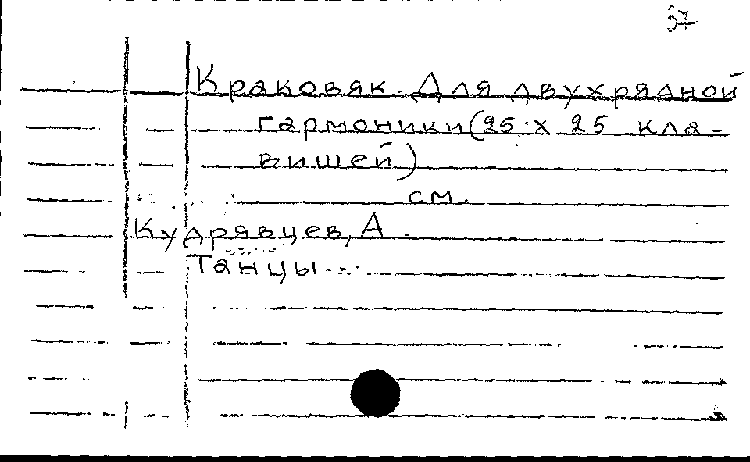 37
Краковяк. Для двухрядной
гармоники (25 х 25 кла-
вишей)
см.
Кудрявцев, А.
Танцы...